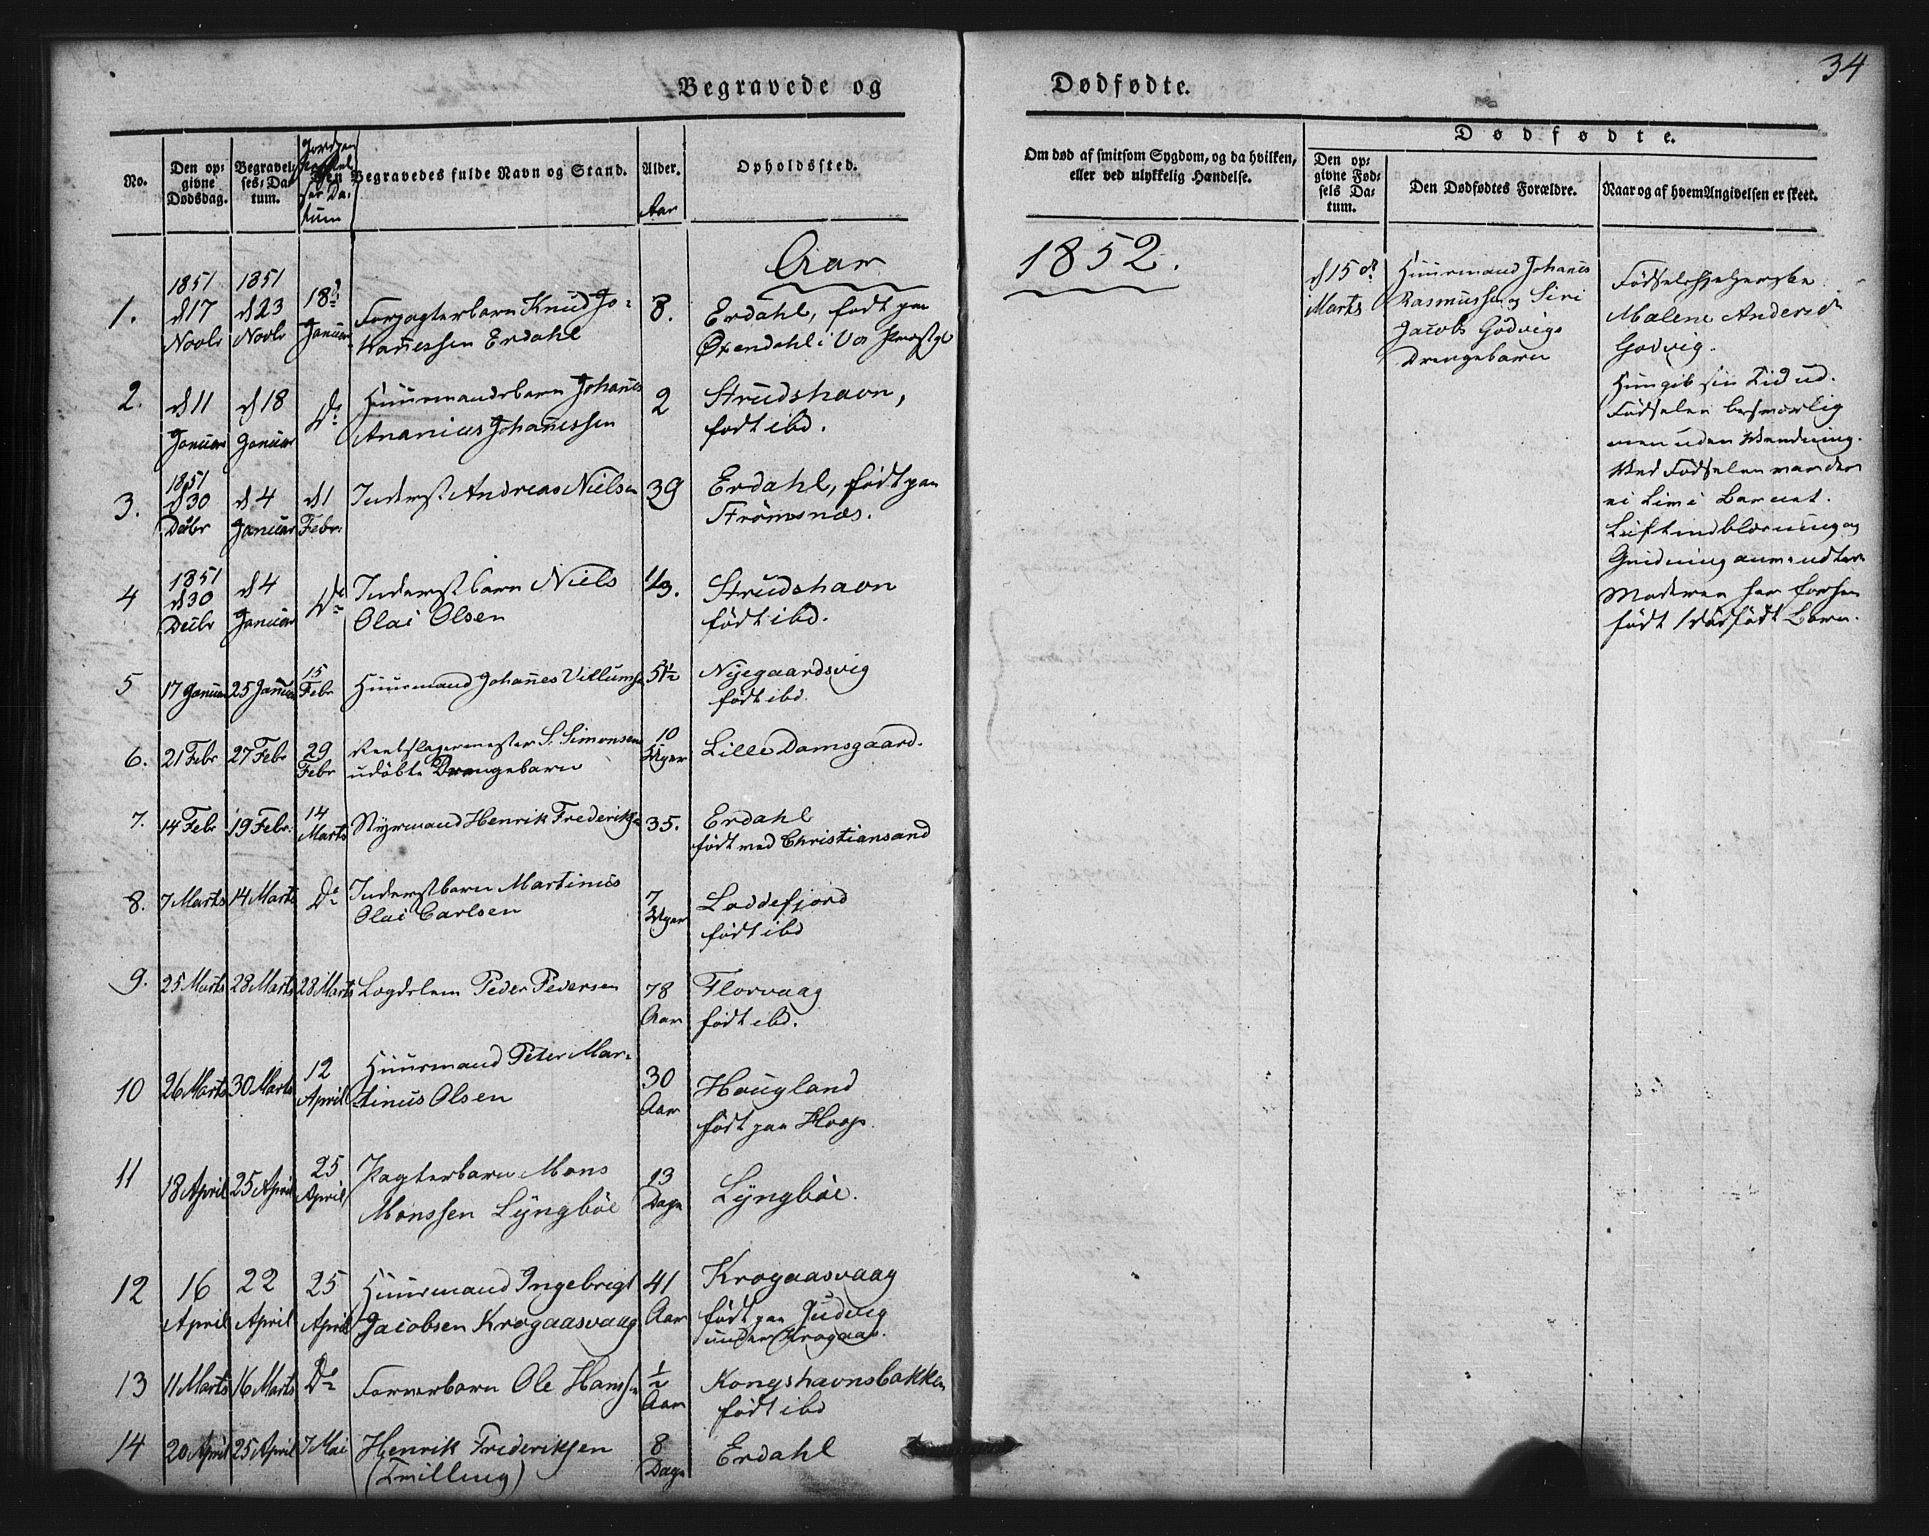 34
Begravede og Dødfødte.
No.
Den opgivne Dødsdag.
Begravelses-Datum.
Den Begravedes fulde Navn og Stand.
Alder.
Aar
Opholdssted.
Om død af smitsom Sygdom, og da hvilken, eller ved ulykkelig Hændelse.
Dødfødte.
Den opgivne Fødsels Datum.
Den Dødfødtes Forældre.
Naar og af hvem Angivelsen er skeet.
Aar 1852.
1. 1851 d 17 Novbr 1851 d 23 Novbr 18de Januar Forpagterbarn Knud Johannessen Erdahl 8. Erdahl, født paa Øxendahl i Vos Præstgl
2. d 11 Januar d 18 Januar Do Huurmandsbarn Johanes Ananias Johanessen 2 Strudshavn, født ibd.
3. 1851 d 30 Decbr d 4 Januar d 1 Febr: Inderst Andreas Nielsen 39 Erdahl, født paa Strømsnæs.
4 1851 d 30 Decbr d 4 Januar Do Inderstbarn Niels Olai Olsen 1/3. Strudshavn født ibd.
5 17 Januar 25 Januar 15 Febr Huurmand Johannes Villumsen 51½ Nyegaardsvig født ibd.
6. 21 Febr 27 Febr 29 Febr Reebslagermester S. Simonsens udöbte Drengebarn 10 Uger Lille Damsgaard.
7. 14 Febr 19 Febr. 14 Marts Styrmand Henrik Frederiksen 35. Erdahl født ved Christiansand
8. 7 Marts 14 Marts Do Inderstbarn Martinus Olai Carlsen 7 Uger Loddefjord født ibd
9. 25 Marts 28 Marts 28 Marts Lægdslem Peder Pedersen 78 Aar Florvaag født ibd.
10 26 Marts 30 Marts 12 April Huurmand Peter Martinus Olsen 30 Aar Hougland født paa Hop.
11 18 April 25 April 25 April Pagterbarn Mons Monssen Lyngböe 13 Dage Lyngböe.
12 16 April 22 April 25 April Huurmand Ingebrigt Jacobsen Krogaasvaag 41 Aar Krogaasvaag født paa Judvig under Krogaas.
13 11 Marts 16 Marts Do Farverbarn Ole Hanssen ½ Aar Kongshavnsbakken født ibd
14 20 April 25 April 7 Mai Henrik Frederiksen (Tvilling) 8 Dage Erdahl
d 15de Marts
Huurmand Johanes
Rasmussen og Siri
Jacobs Godvigs
Drengebarn
Fødselshjelperske
Malene Andersd
Godvig.
Hun gik sin Tid ud.
Fødselen besværlig
men uden Vending.
Ved Fødselen var der
ei Liv i Barnet.
Luftindblæsning og
Gnidning anvendtes
Moderen har forhen
født 1 dødfødt Barn.